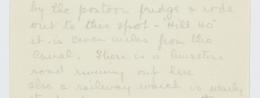 by the pontoon bridge & rode
out to this spot - "Hill 40"
it is seven miles from the
Canal. There is a
road running out here
also a railway which is nearly